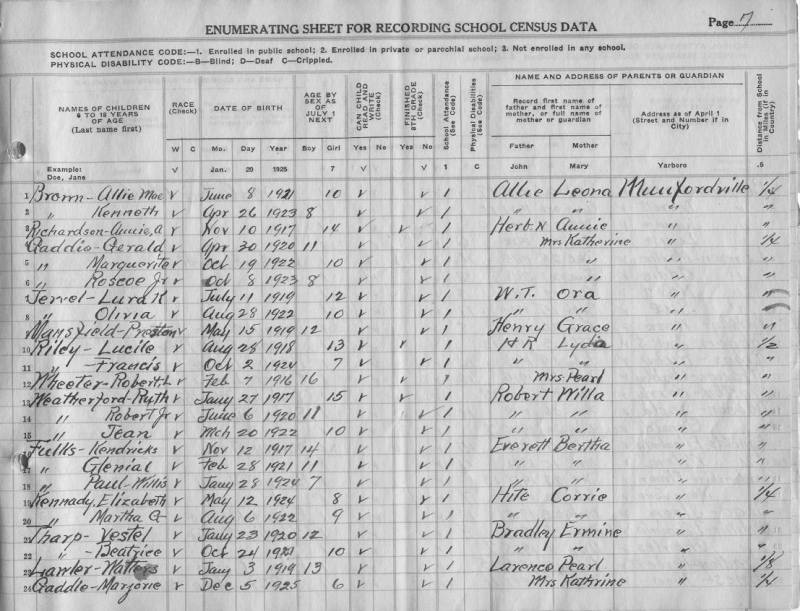 Page 7
ENUMERATING SHEET FOR RECORDING SCHOOL CENSUS DATA
SCHOOL ATTENDANCE CODE:—1. Enrolled in public school; 2. Enrolled in private or parochial school; 3. Not enrolled in any school.
PHYSICAL DISABILITY CODE:—B—Blind; D—Deaf C—Crippled.
NAMES OF CHILDREN 6 TO 18 YEARS OF AGE (Last name first) RACE (Check) DATE OF BIRTH AGE BY SEX AS OF JULY 1 NEXT CAN CHILD READ AND WRITE (Check) FINISHED 8TH GRADE (Check) School Attendance (See Code) Physical Disabilities (See Code) NAME AND ADDRESS OF PARENTS OR GUARDIAN Distance from School in Miles (if in Country)
Record first name of father and first name of mother, or full name of mother or guardian Address as of April 1 (Street and Number if in City)
W C Mo. Day Year Boy Girl Yes No Yes No Father Mother
Example: Doe, Jane V Jan. 20 1925 7 V V 1 C John Mary Yarboro .5
1 Brown - Allie Mae v June 8 1921 10 v v 1 Allie Leona Munfordville 1/4
2 " Kenneth v Apr 26 1923 8 v 1 " " " "
3 Richardson - Annie, A v Nov 10 1917 14 v v 1 Herb. N Annie "
4 Gaddie - Gerald v Apr 30 1920 11 v v 1 Mrs Katherine " 1/4
5 " Marguerite v Oct 19 1922 10 v v 1 " " "
6 " Roscoe Jr v Oct 8 1923 8 v v 1 " " "
7 Lura K v July 11 1919 12 v v 1 W.T. Ora " "
8 " Olivia v Aug 28 1922 10 v v 1 " " " "
9 Mansfield - Preston v May 15 1919 12 v v 1 Henry Grace " "
10 Riley - Lucile v Aug 28 1918 13 v v 1 H R Lydia " 1/2
11 " - Francis v Oct 2 1924 7 v v 1 " " " "
12 Wheeler - Robert. L v Feb 7 1916 16 v v 1 Mrs Pearl " "
13 Weatherford - Ruth v Jany 27 1917 15 v v 1 Robert Willa " "
14 " Robert Jr v June 6 1920 11 v v 1 " " " "
15 " Jean v Mch 20 1922 10 v v 1 " " " "
16 Fulks - Kendricks v Nov 12 1917 14 v v 1 Everett Bertha " "
17 " Glenial v Feb 28 1921 11 v v 1 " " " "
18 " Paul - Willis v Jany 28 1924 7 v v 1 " " "
19 Kennady, Elizabeth v May 12 1924 8 v v 1 Hite Corrie " 1/4
20 " Martha v Aug 6 1922 9 v v 1 " " " "
21 Tharp - Vestel v Jany 23 1920 12 v v 1 Bradley Ermine " "
22 " - Beatrice v Oct 24 1921 10 v v 1 " " " "
23 Lawler - v Jany 3 1919 13 v v 1 Larence Pearl " 1/8
24 Gaddie - Marjorie v Dec 5 1925 6 v v 1 Mrs Kathrine " 1/4